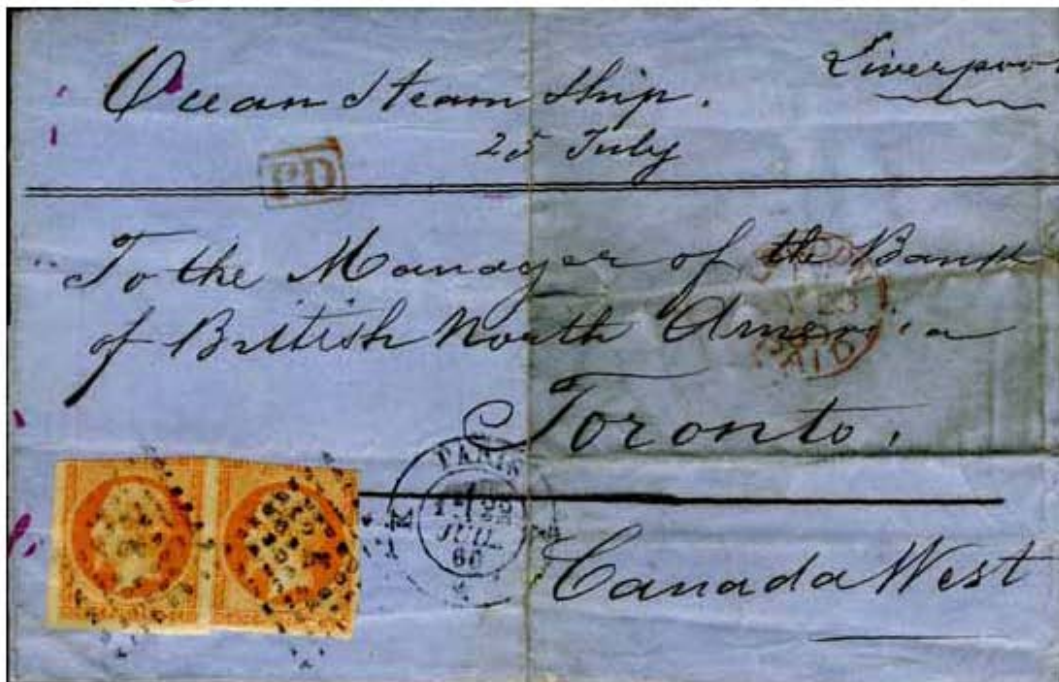 Ocean Steam Ship.
Liverpool
25 July
PD
To the Manager of the Bank
of British North America
Toronto.
PARIS
K
22
JUIL.
60
PAID
Canada West